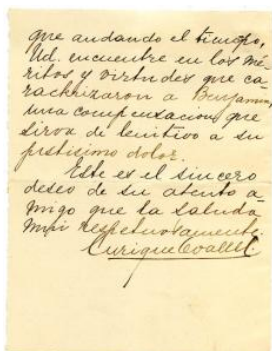 que andando el tiempo,
Ud. encuentre en los mé-
ritos y virtudes que ca-
racterizaron a Benjamin,
una compensacion que
sirva de lenitivo a su
justisimo dolor.
Este es el sincero
deseo de su atento a-
migo que la saluda
mui respetuosamente.
Enrique Ovalle C.